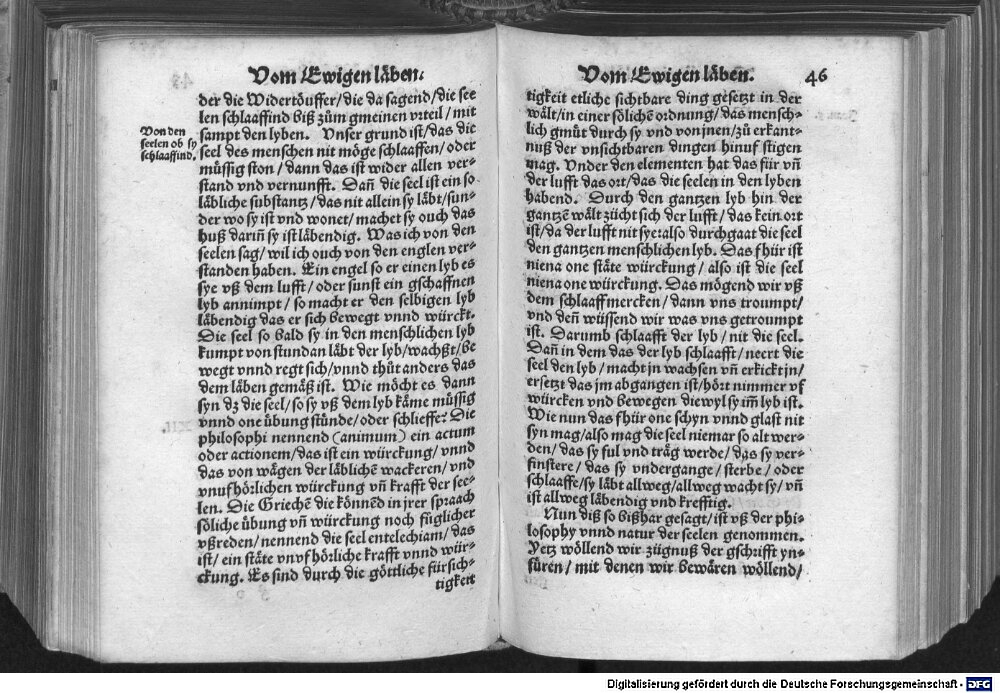 Vom Ewigen läben.
der die Widertöuffer/die da sagend/die see
len schlaaffind biß zům gmeinen vrteil/mit
sampt den lyben. Vnser grund ist/das die
Von den
seelen ob sy
schlaaffind.
seel des menschen nit möge schlaaffen/oder
müssig ston/dann das ist wider allen ver-
stand vnd vernunfft. Dañ die seel ist ein so
läbliche substantz/das nit allein sy läbt/sun-
der wo sy ist vnd wonet/machet sy ouch das
huß dariñ sy ist läbendig. Was ich von den
seelen sag/wil ich ouch von den englen ver-
standen haben. Ein engel so er einen lyb es
sye vß dem lufft/oder sunst ein gschaffnen
lyb annimpt/so macht er den selbigen lyb
läbendig das er sich bewegt vnnd würckt.
Die seel so bald sy in den menschlichen lyb
kumpt von stundan läbt der lyb/wachßt/be
wegt vnnd regt sich/vnnd thůt anders das
dem läben gemäß ist. Wie möcht es dann
syn dz die seel/so sy vß dem lyb käme müssig
vnnd one übung stünde/oder schlieffe? Die
philosophi nennend (animum) ein actum
oder actionem/das ist ein würckung/vnnd
das von wägen der läblichē wackeren/vnd
vnufhörlichen würckung vñ krafft der see-
len. Die Griechē die könnēd in jrer spraach
söliche übung vñ würckung noch füglicher
vßreden/nennend die seel entelechiam/das
ist/ein stäte vnvfhörliche krafft vnnd wür-
ckung. Es sind durch die göttliche fürsich-
tigkeit
Vom Ewigen läben. 46
tigkeit etliche sichtbare ding gesetzt in der
wält/in einer sölichē ordnung/das mensch-
lich gmüt durch sy vnd von jnen/zů erkant-
nuß der vnsichtbaren dingen hinuf stigen
mag. Vnder den elementen hat das für vñ
der lufft das ort/das die seelen in den lyben
habend. Durch den gantzen lyb hin der
gantzē wält zücht sich der lufft/das kein ort
ist/da der lufft nit sye: also durchgaat die seel
den gantzen menschlichen lyb. Das fhür ist
niena one stäte würckung/also ist die seel
niena one würckung. Das mögend wir vß
dem schlaaff mercken/dann vns troumpt/
vnd deñ wüssend wir was vns getroumpt
ist. Darumb schlaafft der lyb/nit die seel.
Dañ in dem das der lyb schlaafft/neert die
seel den lyb/macht jn wachsen vñ erkickt jn/
ersetzt das jm abgangen ist/hört nimmer vf
würcken vnd bewegen diewyl sy im̄ lyb ist.
Wie nun das fhür one schyn vnnd glast nit
syn mag/also mag die seel niemar so alt wer-
den/das sy ful vnd träg werde/das sy ver-
finstere/das sy vndergange/sterbe/oder
schlaaffe/sy läbt allweg/allweg wacht sy/vñ
ist allweg läbendig vnd krefftig.
Nun diß so bißhar gesagt/ist vß der phi-
losophy vnnd natur der seelen genommen.
Yetz wöllend wir zügnuß der gschrifft yn-
füren/mit denen wir bewären wöllend/
Digitalisierung gefördert durch die Deutsche Forschungsgemeinschaft - DFG